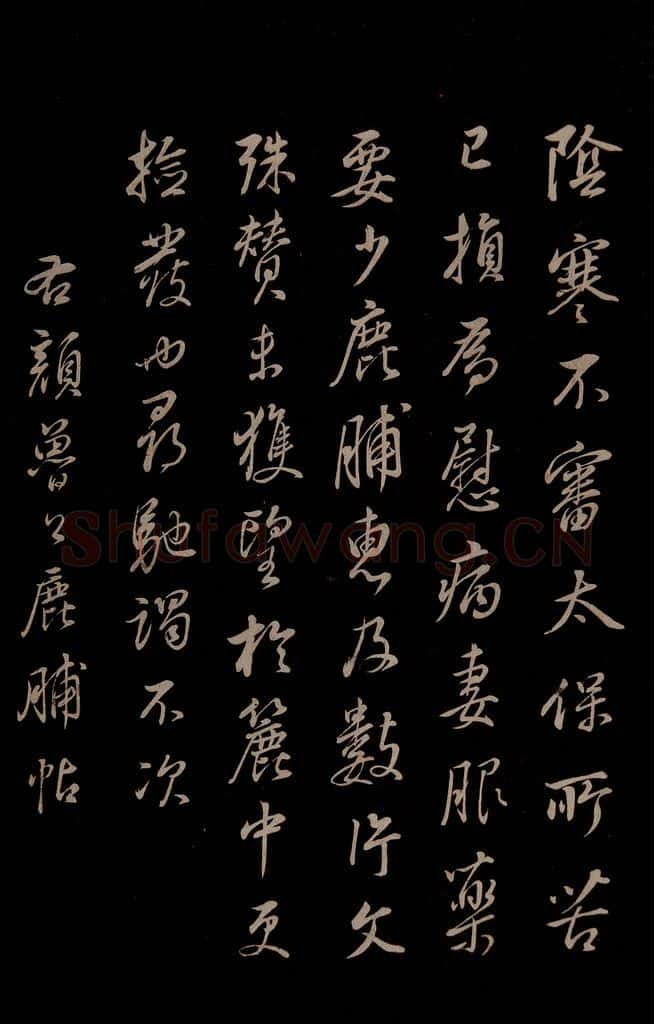 陰寒不審太保所苦
已損為慰病妻服藥
要少鹿脯惠及數片文
殊賛未獲望於簏中更
撿發也尋馳謁不次
右顏魯公鹿脯帖
Shufawang.CN